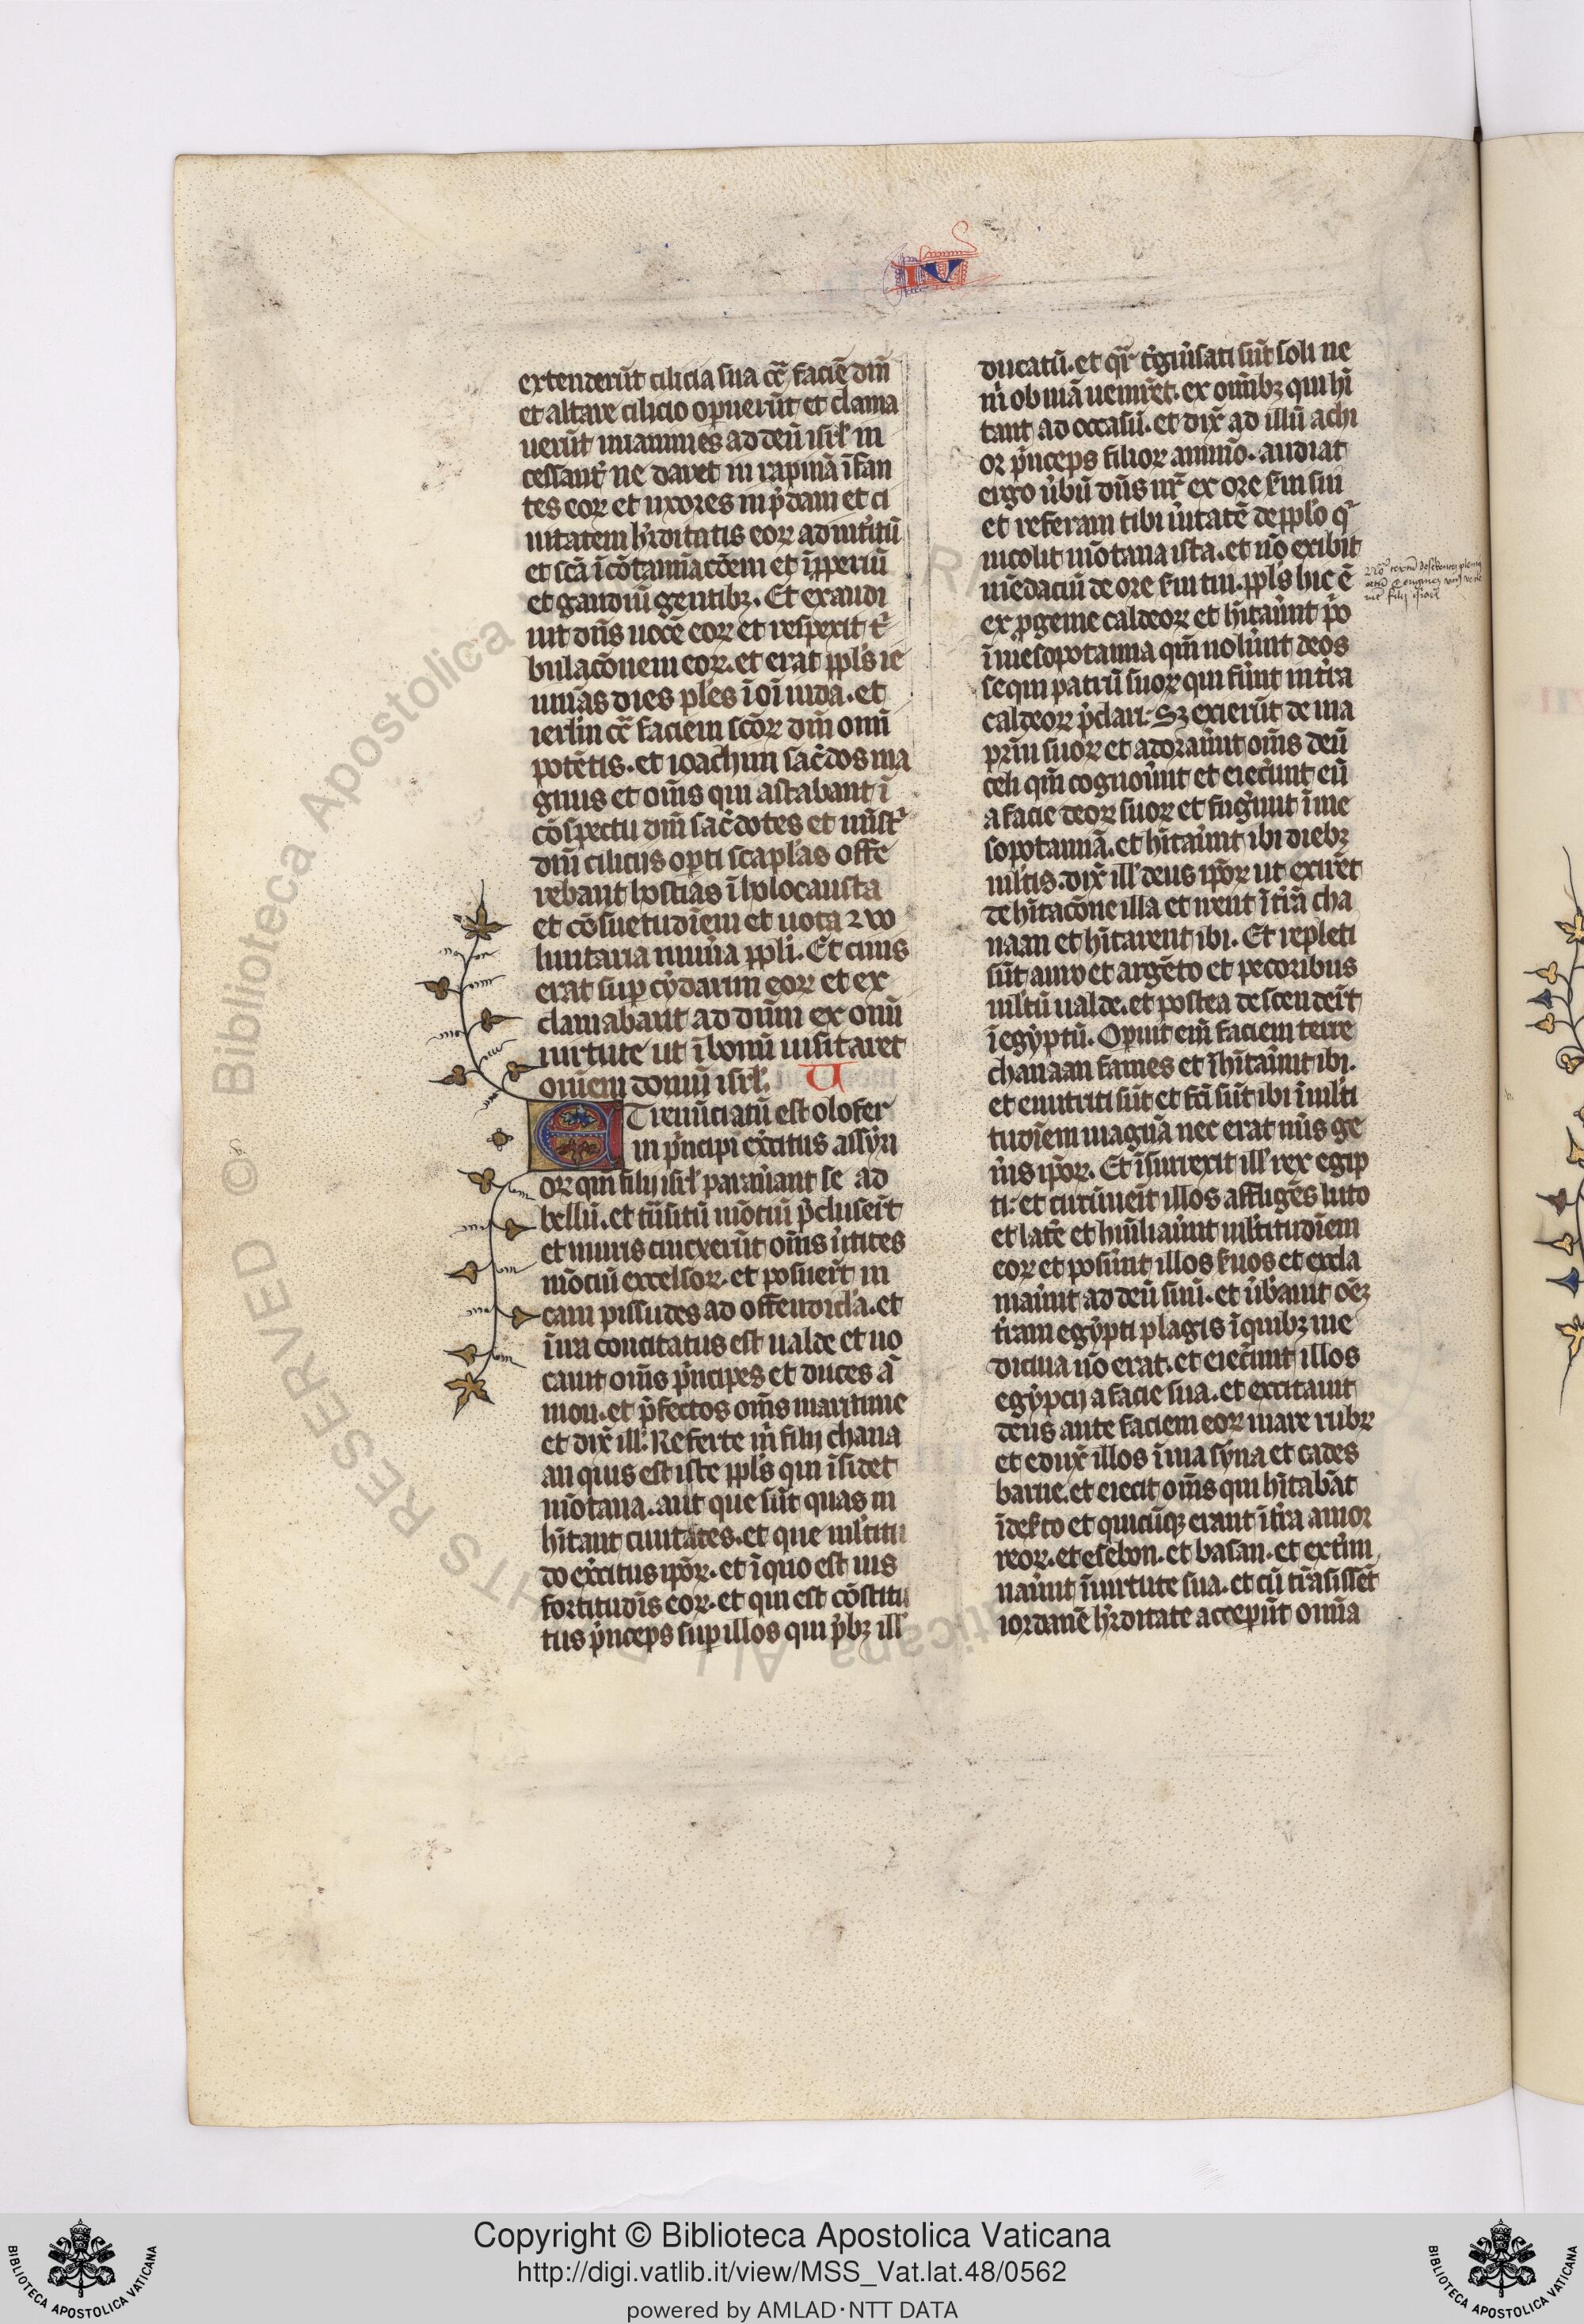 IU
extenderūt cilicia sua cc̄ faciē dm̄
et altare cilicio opuerūt et clama
uerūt unanimes ad deū isrl̄ in
cessant̄ ne daret in rapinā īfan
tes eoꝝ et uxores in p̄dam et ci
uitatem h̄rditatis eoꝝ ad int̄itū
et sc̄a ī cōtamīacōem et īpperiū
et gaudiū gentibꝫ. Et exaudi
uit dn̄s uocē eoꝝ et respexit t̄
bulacōnem eoꝝ. et erat ppl̄s ie
iunās dies pl̄es ī oī iuda. et
ierl̄m cc̄ faciem sc̄oꝝ dm̄ omī
potētis. et ioachim sac̄dos ma
gnus et om̄s qui astabant ī
cōspectu dm̄ sac̄dotes et mīst̄
dm̄ ciliciis opti scapl̄as offe
rebant hostias ī holocausta
et cōsuetudīem et uota ⁊ uo
luntaria mun̄a ppl̄i. Et cinis
erat sup cydarim eoꝝ et ex
clamabant ad dūm ex omī
uirtute ut ī bonū uisitaret
omēm domū isrl̄. U
Et renūciatū est olofer
ni p̄ncipi ex̄citus assyri
oꝝ qm̄ filij isrl̄ parau̅ant se ad
bellū. et tn̄sitū mōtiū p̄cluser̄t
et muris cinxerūt om̄s ūtices
mōtiū excelsoꝝ. et posuer̄t in
cam pissudes ad offendicl̄a. et
ī ira concitatus est ualde et uo
cauit om̄s p̄ncipes et duces ā
mon. et p̄fectos om̄s maritime
et dix̄ ill̄. Referte m̄ filij chana
an quis est iste ppl̄s qui īsidet
mōtana. aut que sūt quas in
hītant ciuitates. et que ml̄titu
do ex̄citus ip̄oꝝ. et ī quo est uis
fortitudīs eoꝝ. et qui est cōstitu
tus p̄nceps sup illos qui p̄bꝫ ill̄
ducatū. et qr̄ t̄giūsati sūt soli ne
m̄ obuiā uenir̄et. ex omībꝫ qui hī
tant ad occasū. et dix̄ ad illū achi
or p̄nceps filioꝝ ammō. audiat
ergo ūbū dn̄s nr̄ ex ore s̄ui sui
et referam tibi ūitatē de pplo q̄
incolit mōtana ista. et nō exibit
mēdaciū de ore s̄ui tui. ppl̄s hic ē
ex pgenie caldeoꝝ et hītau̅nt p̄o
ī mesopotamia qm̄ nolu̅nt deos
sequi patrū suoꝝ qui fūnt in t̄ra
caldeoꝝ p̄clari. Sꝫ exierūt de uia
pr̄m suoꝝ et adorau̅nt om̄s deū
celi qm̄ cognoūnt et eiec̄unt eū
a facie deoꝝ suoꝝ et fuḡunt ī me
sopotamiā. et hītau̅nt ibi diebꝫ
ml̄tis. dix̄ ill̄ deus ip̄oꝝ ut exirēt
de hītacōne illa et irent ī t̄rā cha
naan et hītarent ibi. Et repleti
sūt auro et argēto et pecoribus
ml̄tū ualde. et postea descender̄t
ī egyptū. Opuit em̄ faciem terre
chanaan fames et īhītau̅nt ibi.
et enutriti sūt et fc̄i sūt ibi ī ml̄ti
tudīem magnā nec erat nūs ge
n̄is ip̄oꝝ. Et īsurrexit ill̄ rex egip
ti. et circūueīt illos affligēs luto
et lat̄e et hūiliau̅nt ml̄titudīem
eoꝝ et posu̅nt illos s̄uos et excla
mau̅nt ad deū suū. et ūbauit oēꝫ
t̄ram egypti plagis ī quibꝫ me
dicina nō erat. et eiec̄unt illos
egypcij a facie sua. et excitauit
deus ante faciem eoꝝ mare rubꝝ
et edux̄ illos ī uia syna et cades
barne. et eiecit om̄s qui hītabāt
ī des̄to et quicūqꝫ erant ī t̄ra amor
reoꝝ. et esebon. et basan. et ext̄mi
nau̅nt ī uirtute sua. et cū tr̄asissēt
iordanē h̄rditate acceper̄ut omīa
Biblioteca Apostolica Vaticana
© ALL RIGHTS RESERVED
Copyright © Biblioteca Apostolica Vaticana
http://digi.vatlib.it/view/MSS_Vat.lat.48/0562
powered by AMLAD·NTT DATA
BIBLIOTECA APOSTOLICA VATICANA
BIBLIOTECA APOSTOLICA VATICANA